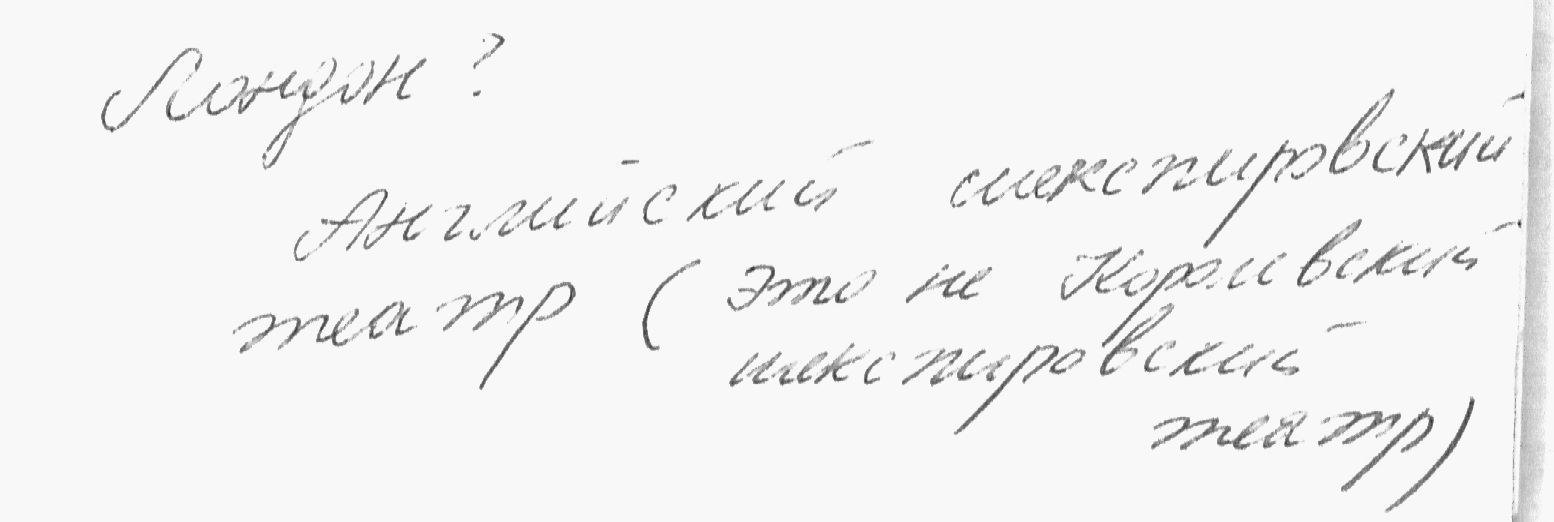 Лондон?
Английский шекспировский
театр (Это не Королевский
шекспировский
театр)